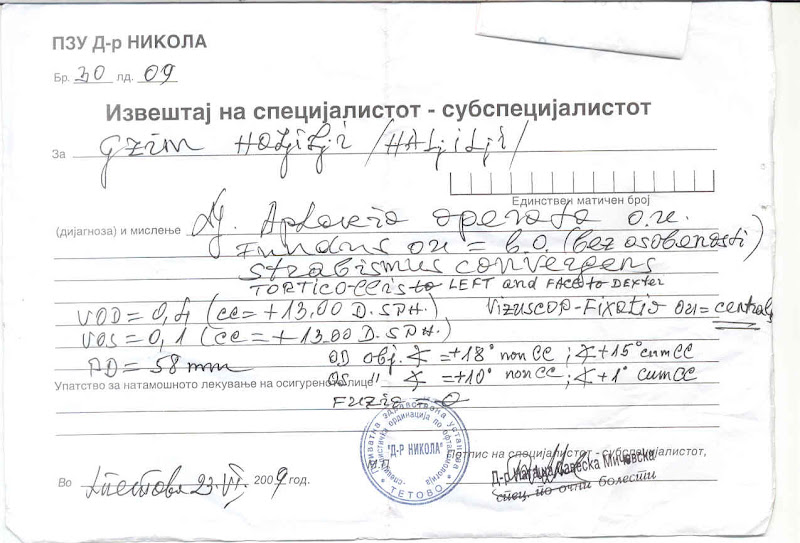 ПЗУ Д-р НИКОЛА
Бр. 30 лд. 09
Извештај на специјалистот - субспецијалистот
За Gzim HOLjiLji /HALjiLji/
Единствен матичен број
(дијагноза) и мислење Dg. Aphakia operata o.u.
Fundus ou = b.o. (bez osobenosti)
Strabismus convergens
TORTICOLLIS to LEFT and FACE to DEXTER
VOD = 0,4 (cc = +13,00 D.SPH.) VIZUSCOP-Fixatio ou = centralis
VOS = 0,1 (cc = +13.00 D.SPH.)
PD = 58 mm OD obj. ∢ = +18° non CC ; ∢ +15° cum CC
Упатство за натамошното лекување на осигуреното лице OS " ∢ = +10° non CC ; ∢ +1° cum CC
Fuzia = 0
Потпис на специјалистот - субспецијалистот,
М.П.
"Д-Р НИКОЛА"
ТЕТОВО
Д-р Наташа Мичевска
спец. по очни болести
Во Тетово 23.VI. 2009 год.